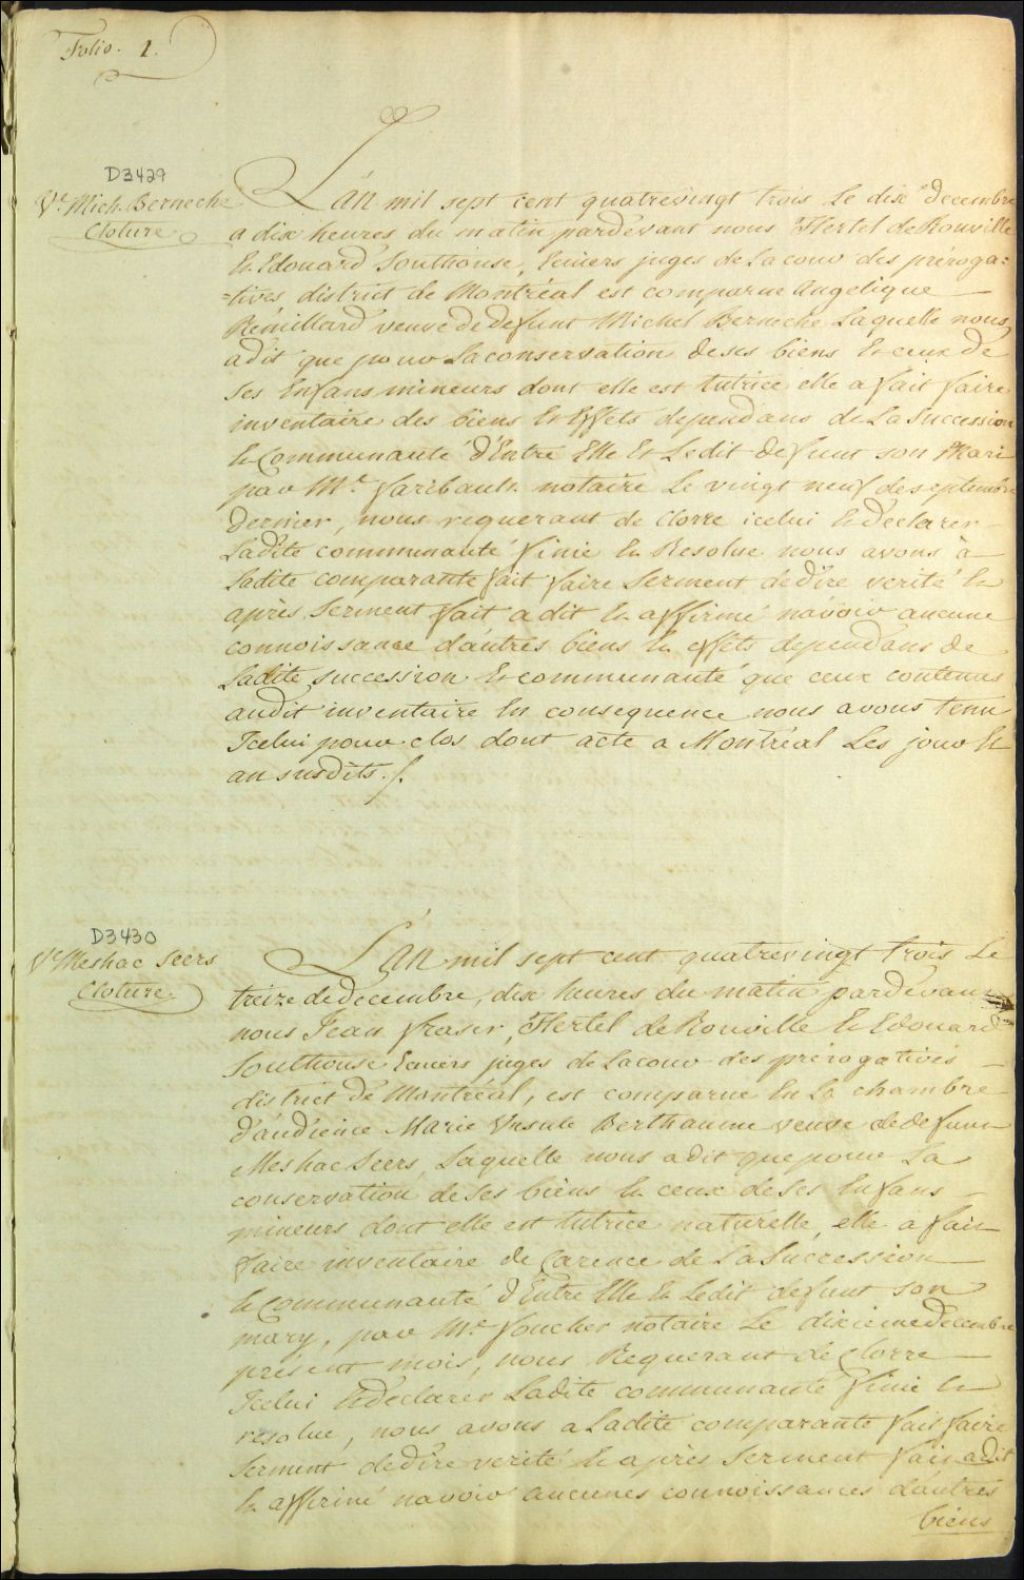 Folio. 1.
D3429
Ve. Mich. Berneche
Cloture
L'an mil sept cent quatrevingt trois le dix decembre
a dix heures du matin pardevant nous Hertel de Rouville
et Edouard Southouse, Ecuiers juges de la cour des préroga=
=tives district de Montréal est comparue Angelique
Rémillard veuve de defunt Michel Berneche laquelle nous
a dit que pour la conservation de ses biens et ceux de
ses Enfans mineurs dont elle est tutrice elle a fait faire
inventaire des biens et Effets dependans de la Succession
et Communauté d'Entre Elle Et Ledit defunt son Mari
par Me. faribault notaire le vingt neuf de septembre
dernier, nous requerant de clorre icelui et declarer
ladite communauté finie et Resolue nous avons à
ladite comparante fait faire serment de dire verité et
après serment fait a dit et affirmé navoir aucune
connoissance d'autres biens et effets dependans de
ladite succession et communauté que ceux contenus
audit inventaire en consequence nous avons tenu
Icelui pour clos dont acte a Montréal les jour et
an susdits ./.
D3430
Ve Meshac Seers
Cloture
L'an mil sept cent quatrevingt trois le
treize de decembre, dix heures du matin pardevant
nous Jean fraser, Hertel de Rouville et Edouard
Southouse Ecuiers juges de la cour des prérogatives
district de Montréal, est comparue en la chambre
d'audience Marie Ursule Berthaume veuve de defunt
Meshac Seers, laquelle nous a dit que pour la
conservation de ses biens et ceux de ses Enfans
mineurs dont elle est tutrice naturelle, elle a fait
faire inventaire de Carence de la Succession
et Communauté d'Entre Elle et ledit defunt son
mary, par Me foucher notaire le dixieme decembre
présent mois, nous Requerant de Clorre
Icelui et declarer ladite communauté finie et
resolue, nous avons a ladite comparante fait faire
serment de dire verité et après serment fait a dit
et affirmé navoir aucunes connoissances d'autres
biens